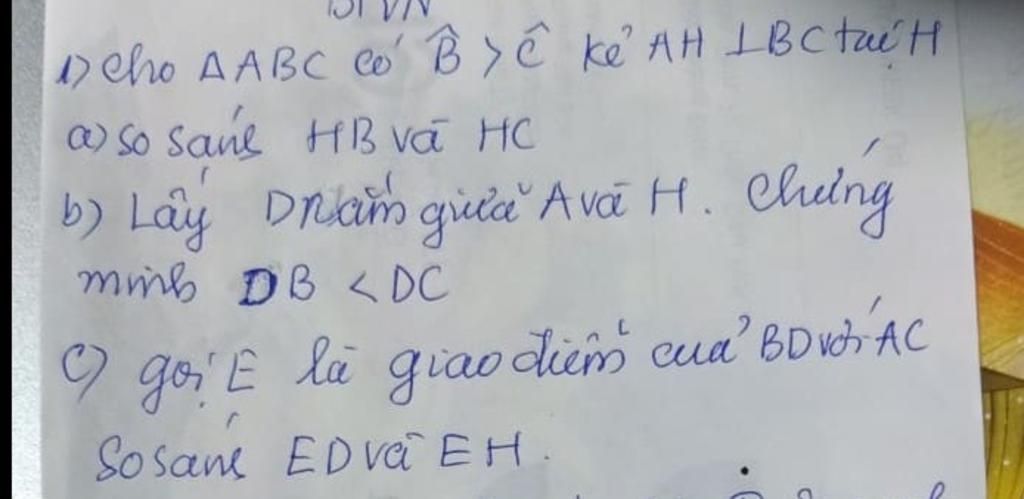 BTVN
1) Cho ΔABC có B̂ > Ĉ kẻ AH ⊥ BC tại H
a) So sánh HB và HC
b) Lấy D nằm giữa A và H. Chứng
minh DB < DC
c) gọi E là giao điểm của BD với AC
So sánh ED và EH.